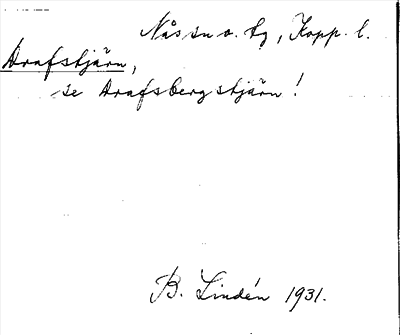 Nås sn o. tg, Kopp. l.
Arafstjärn,
se Arafsbergstjärn!
B. Lindén 1931.